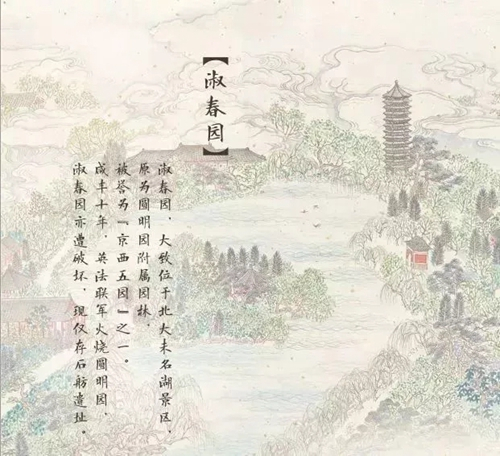 【淑春园】
淑春园，大致位于北大未名湖景区，
原为圆明园附属园林，
被誉为『京西五园』之一。
咸丰十年，英法联军火烧圆明园，
淑春园亦遭破坏，现仅存石舫遗址。